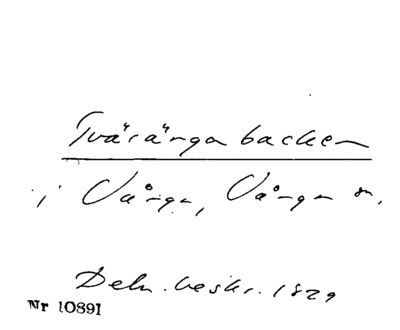 Tvärånga backen
i Vånga, Vånga sn.
Deln. beskr. 1829
Nr 10891